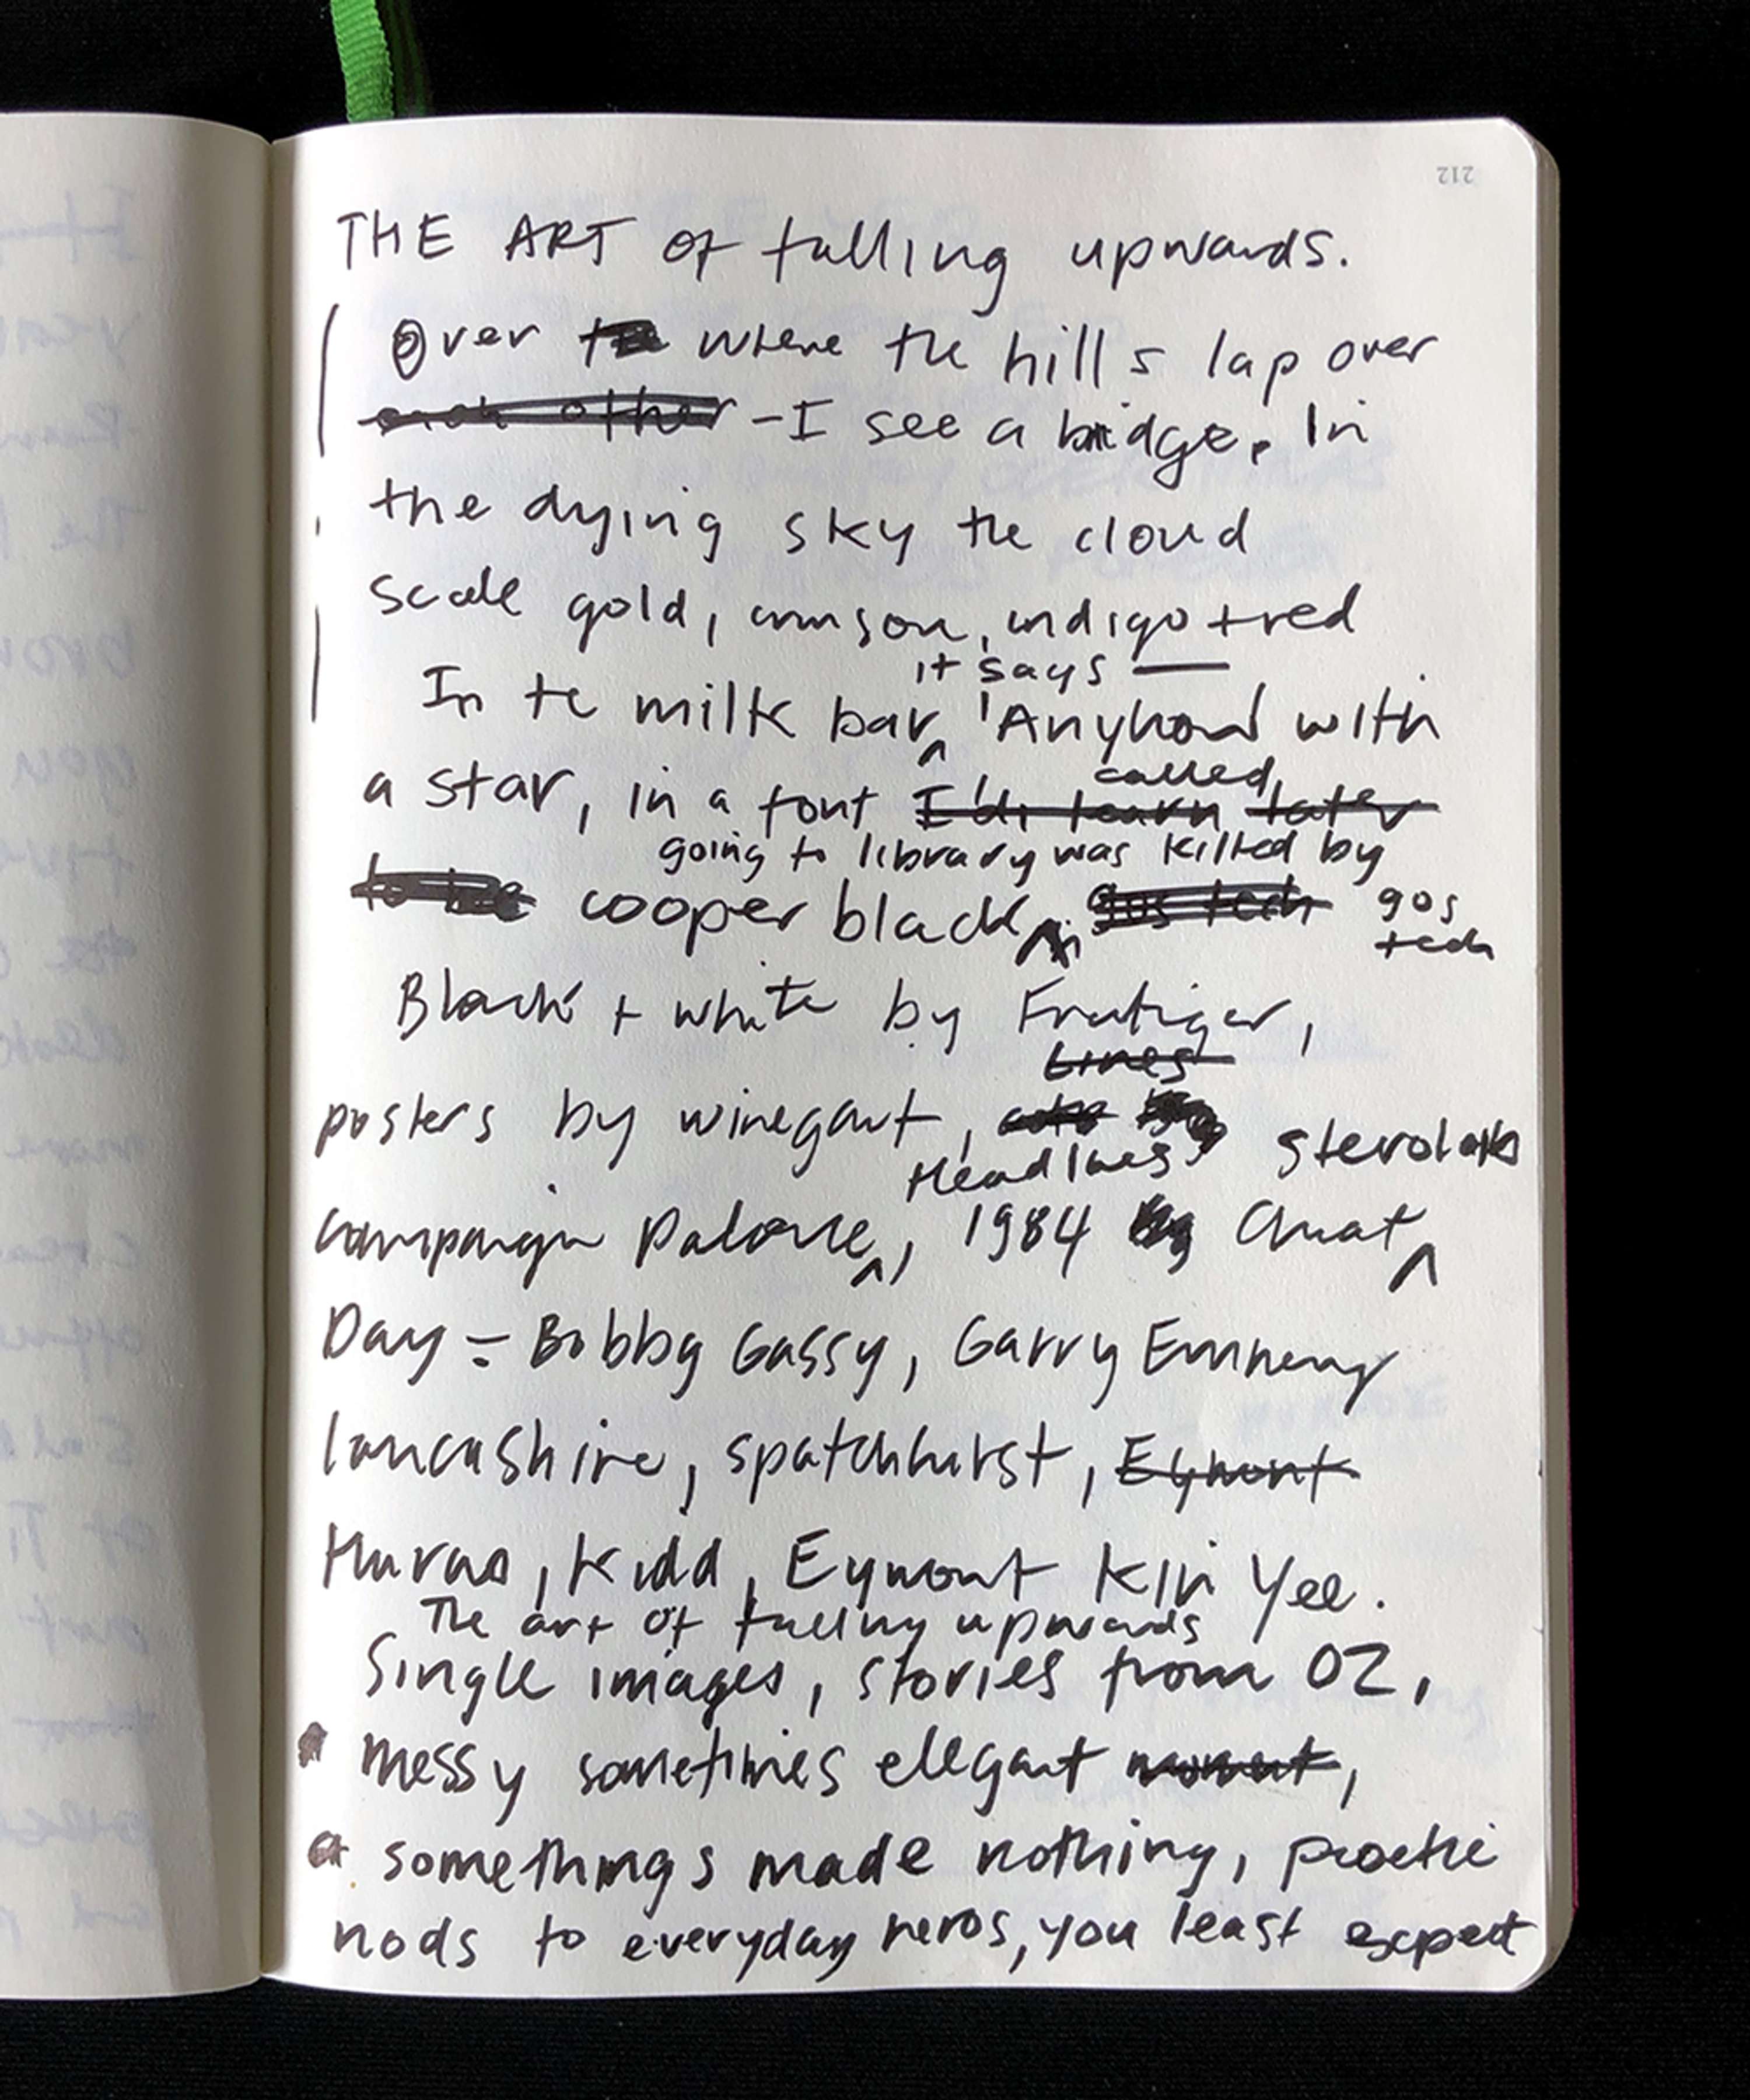 212
THE ART of falling upwards.
Over where the hills lap over
each other - I see a bridge. In
the dying sky the cloud
scale gold, crimson, indigo + red
it says —
In te milk bar 'Anyhow' with
a star, in a font I'd, learn later
called,
going to library was killed by
to be cooper black gos tech gos
tech
Black + white by Frutiger,
Lines
posters by winegart,
Headlines
campaign Palone, 1984 Chiat
Day - Bobby Gassy, Garry Emmery
Lancashire, spatchhurst, Eymont
Kidd, Eymont Kin Yee.
The art of falling upwards
Single images, stories from OZ,
messy sometimes elegant moment,
somethings made nothing, poetic
nods to everyday heros, you least expect